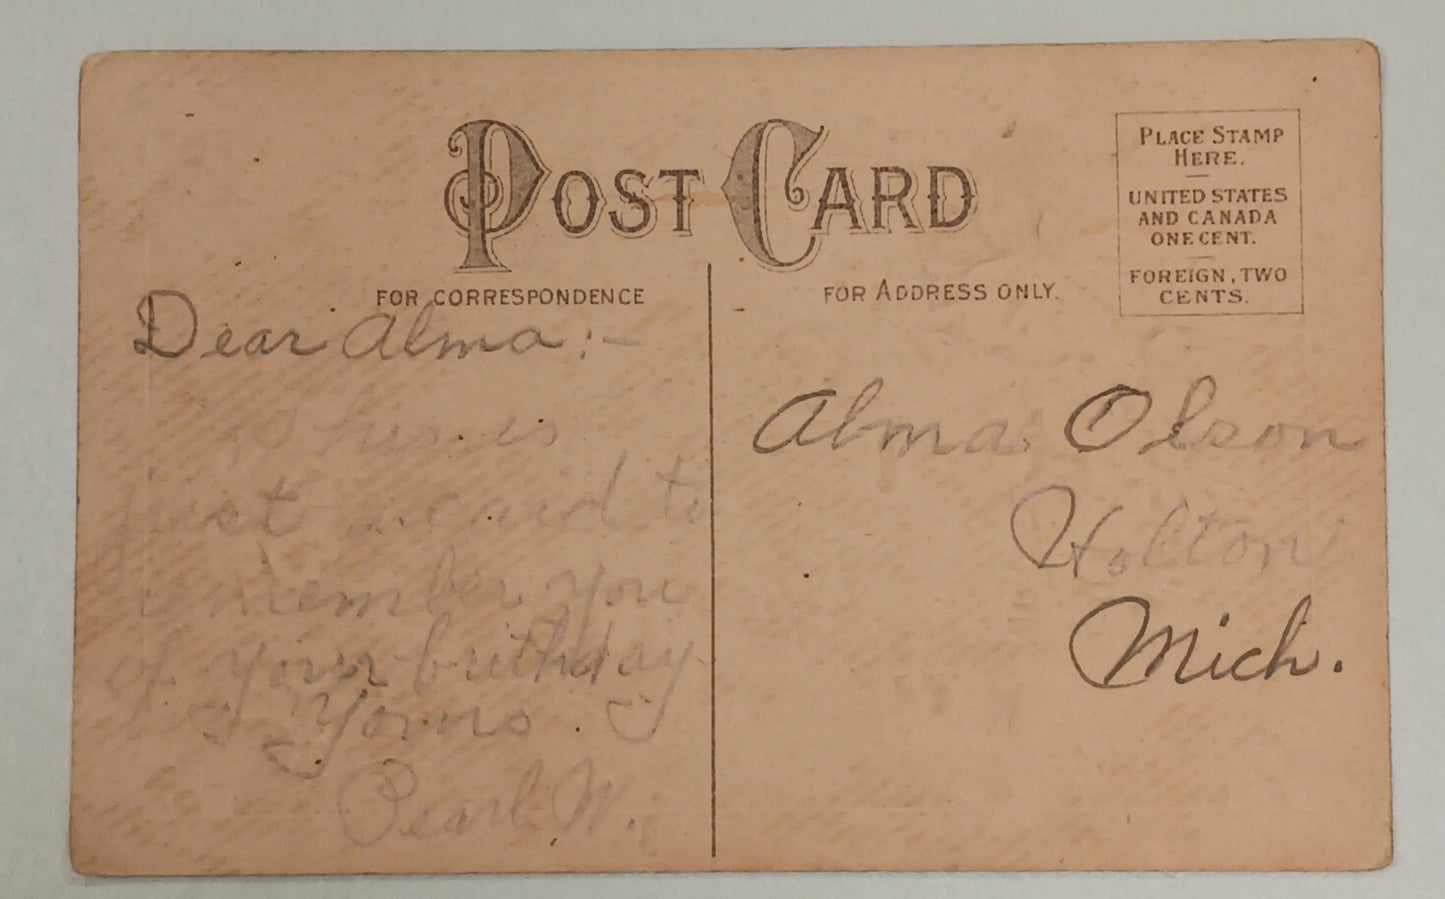 POST CARD
FOR CORRESPONDENCE
FOR ADDRESS ONLY.
PLACE STAMP
HERE.
UNITED STATES
AND CANADA
ONE CENT.
FOREIGN, TWO
CENTS.
Dear Alma:-
This is
just a card to
remember you
of your birthday
Yours
Pearl W.
Alma Olson
Holton
Mich.